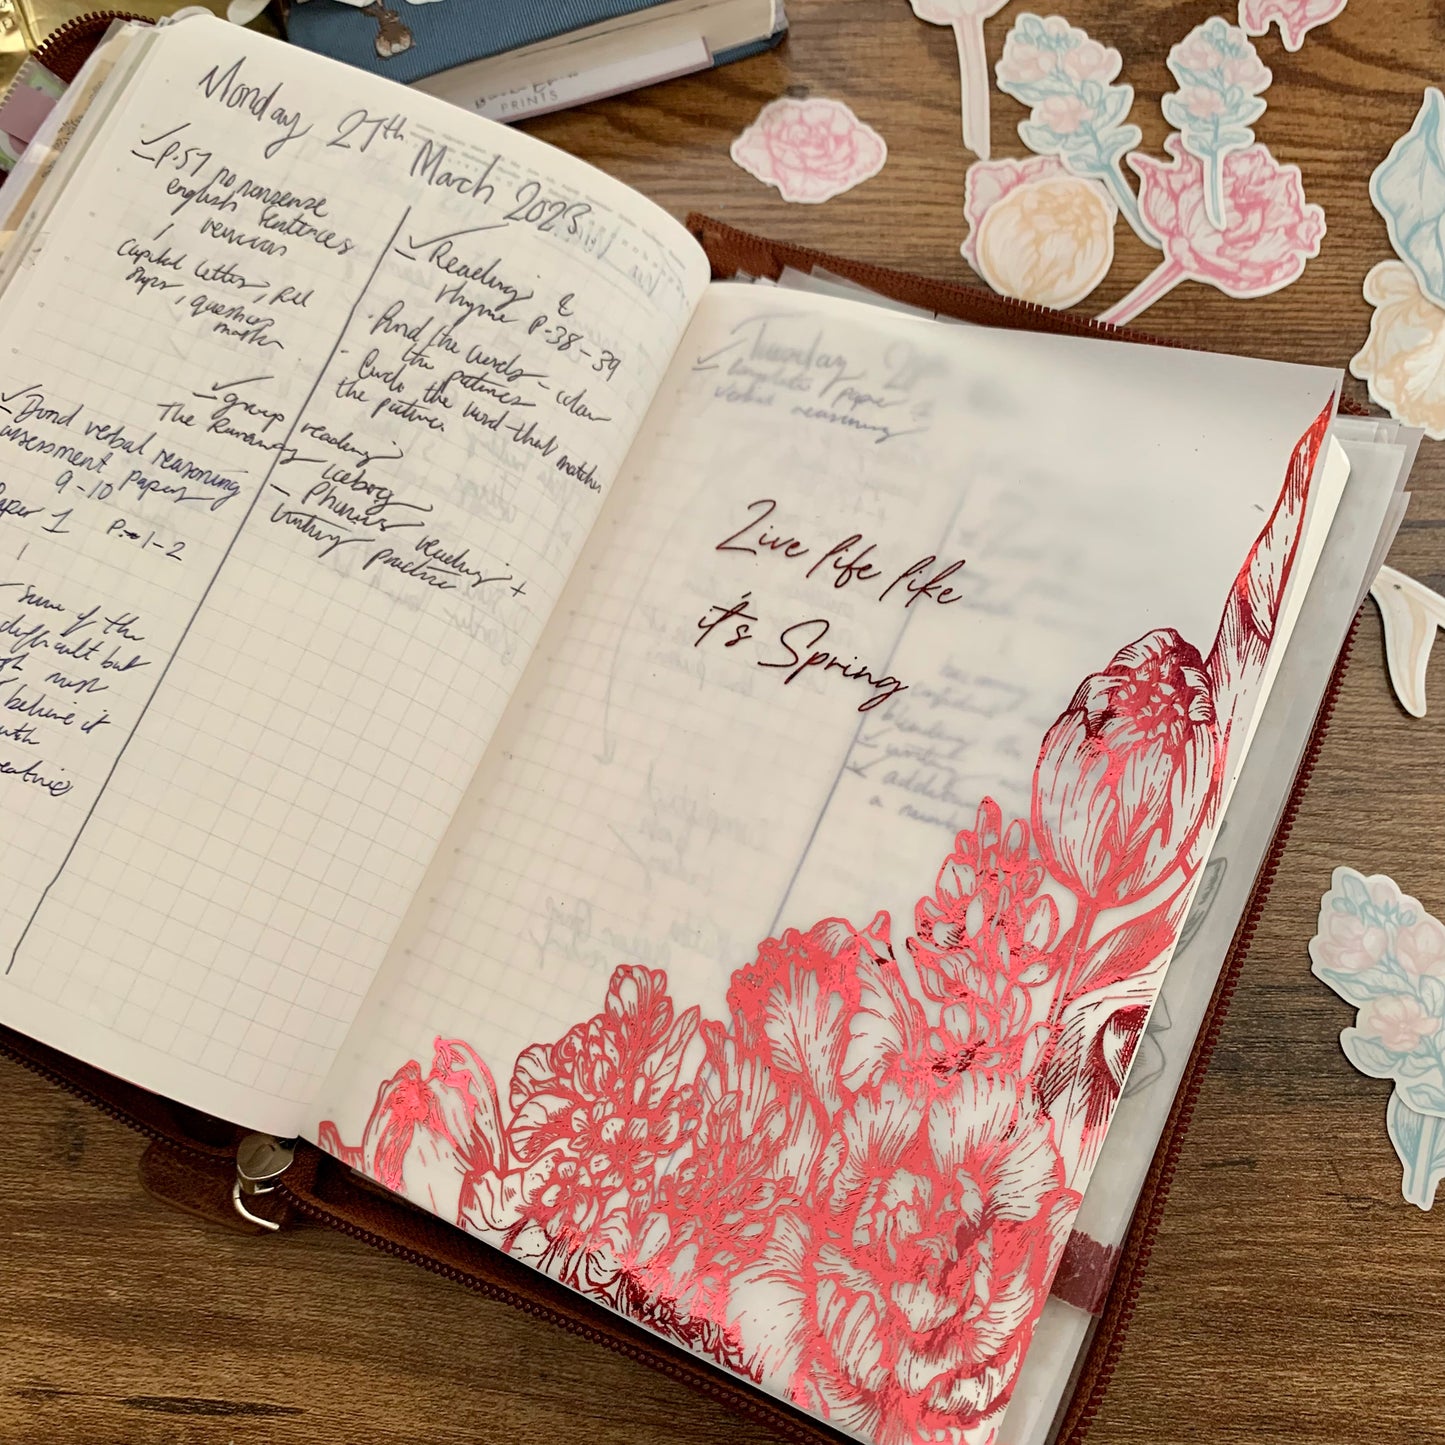 Monday 27th March 2023
p.57 no nonsense
english sentences
revision
capital letters, full
stops, question
marks
Bond verbal reasoning
assessment papers
9-10
Paper 1 p. 1-2
Some of the
difficult but
believe it
with
Reading &
rhyme p.38-39
Find the words - colour
the pictures
Circle the word that matches
the picture
group reading
The Runaway Iceberg
- Phonics reading +
writing practice
PRINTS
Tuesday 2
complete paper 2
verbal reasoning
Live life like
it's Spring